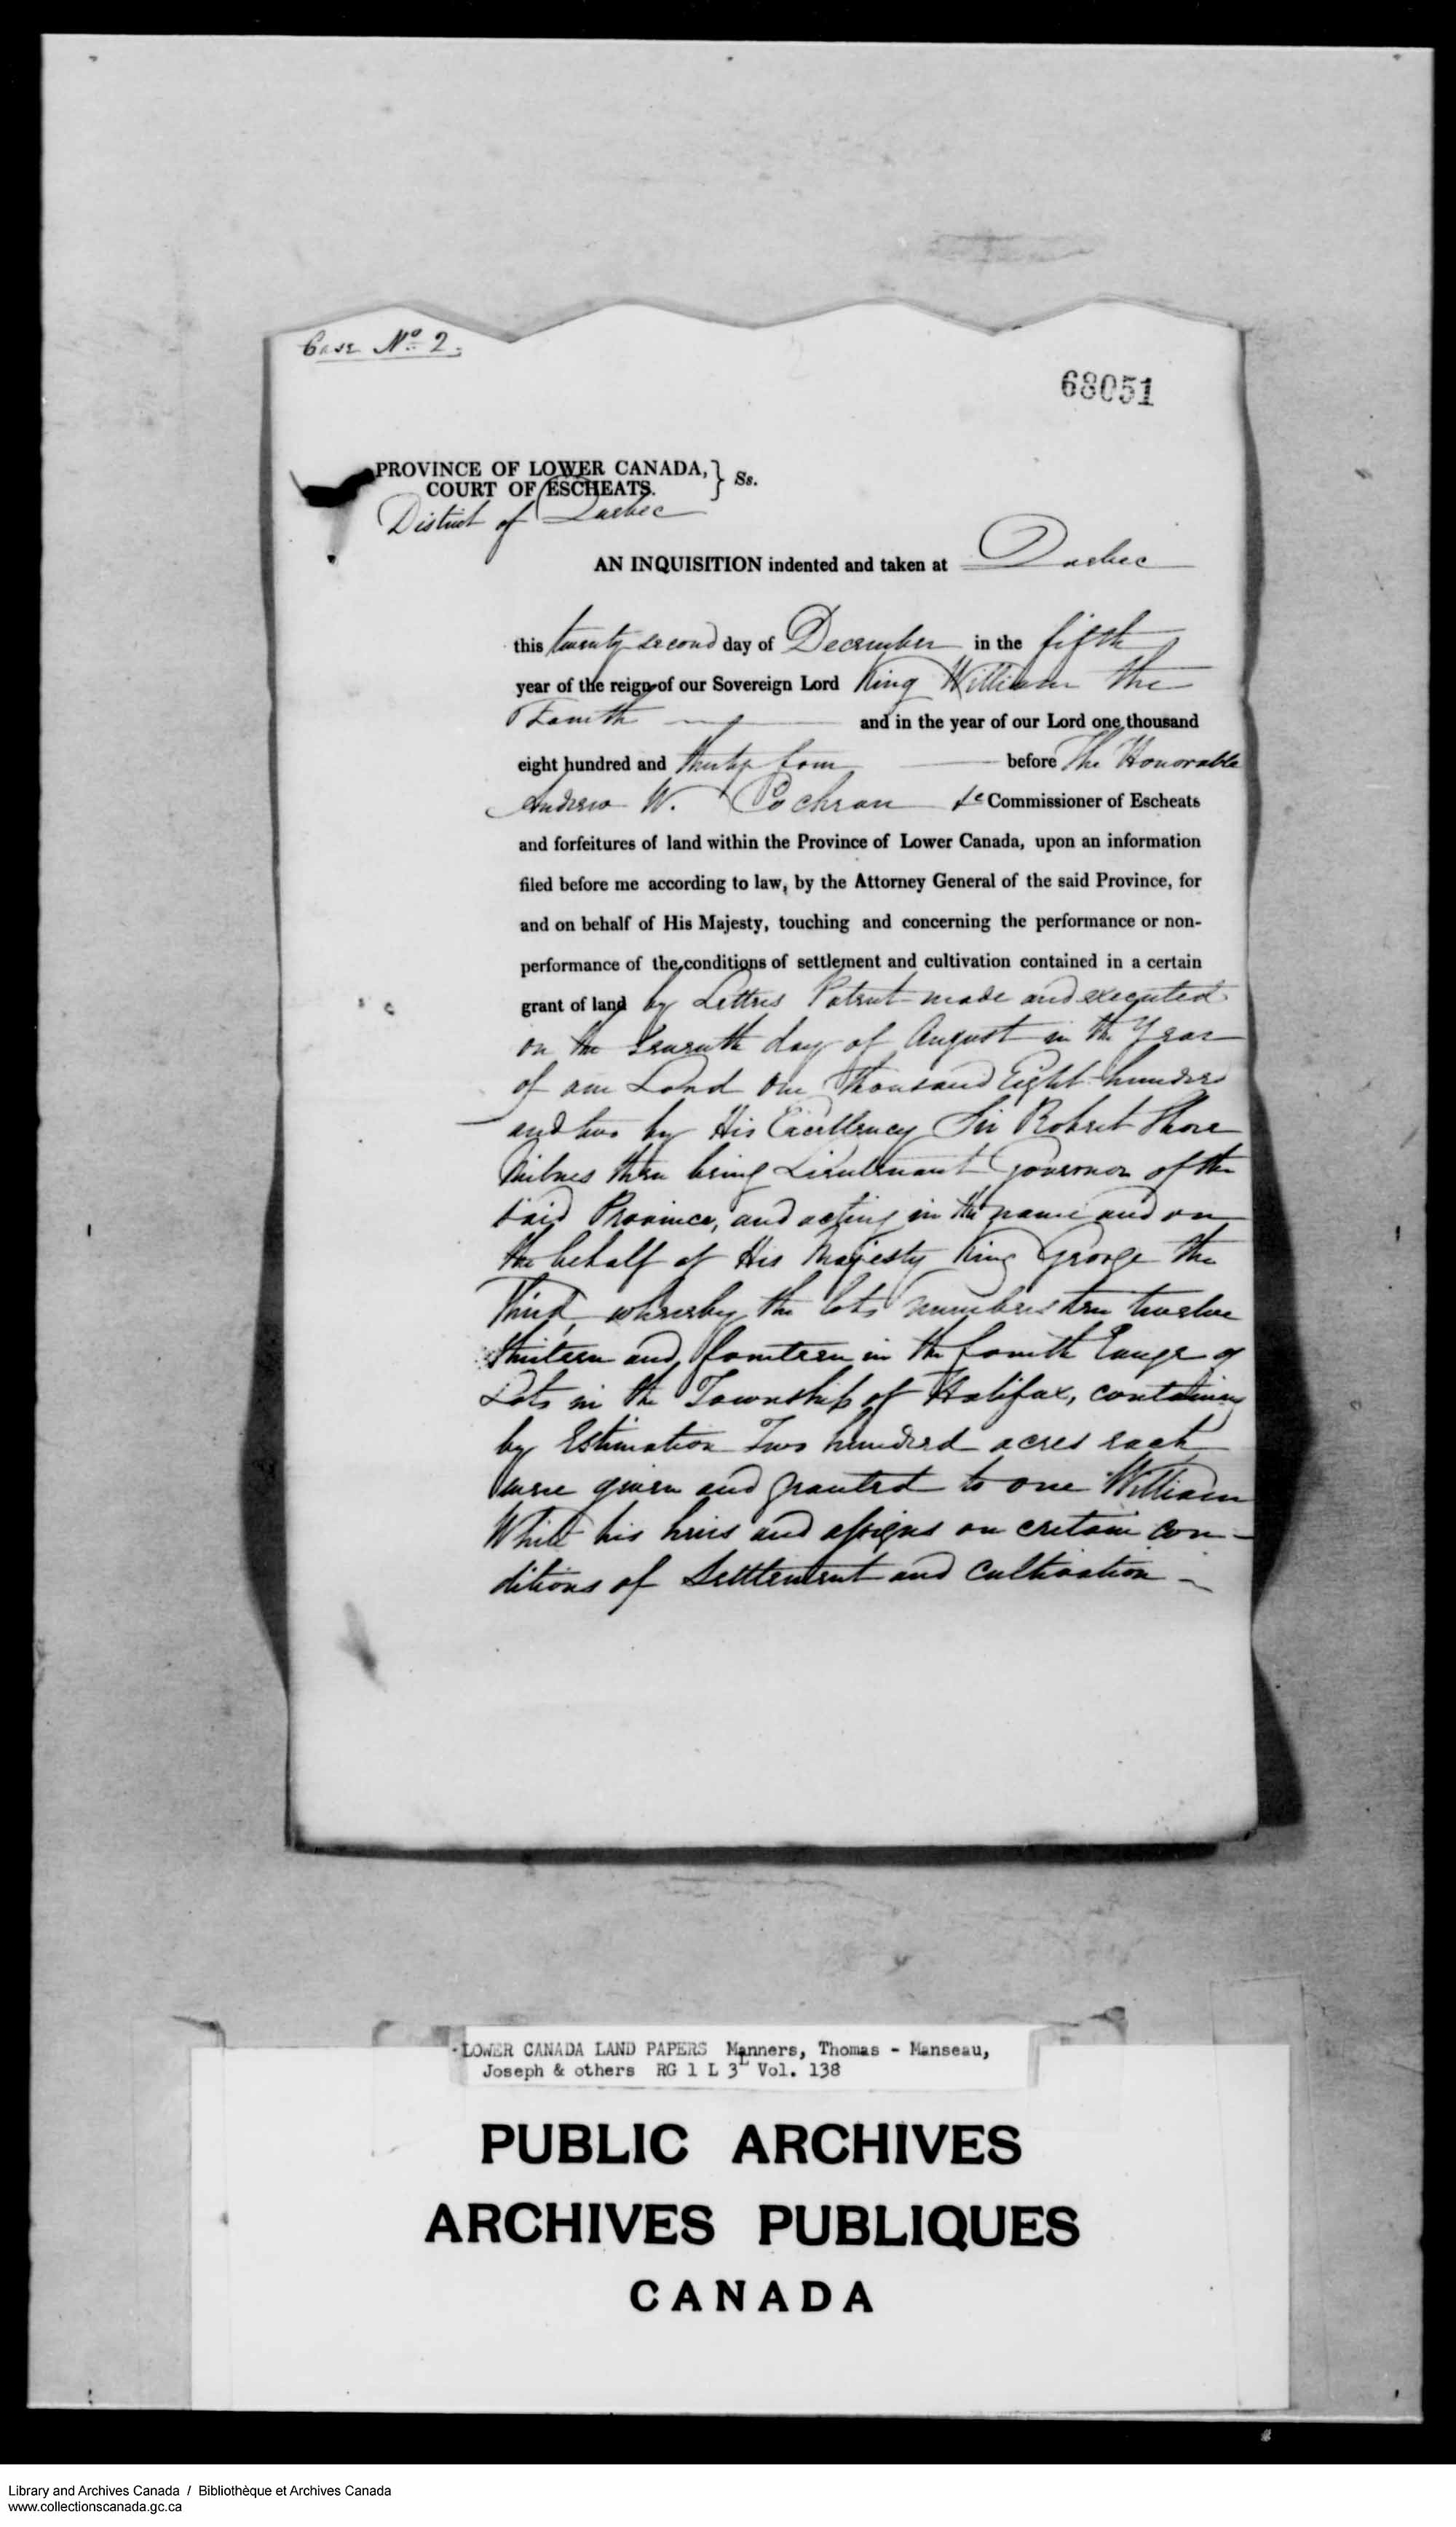 Case No. 2.
68051
PROVINCE OF LOWER CANADA, } Ss.
COURT OF ESCHEATS.
District of Quebec
AN INQUISITION indented and taken at Quebec
this twenty second day of December in the fifth
year of the reign of our Sovereign Lord King William the
Fourth and in the year of our Lord one thousand
eight hundred and thirty four before The Honorable
Andrew W. Cochran Commissioner of Escheats
and forfeitures of land within the Province of Lower Canada, upon an information
filed before me according to law, by the Attorney General of the said Province, for
and on behalf of His Majesty, touching and concerning the performance or non-
performance of the conditions of settlement and cultivation contained in a certain
grant of land by Letters Patent made and executed
on the Seventh day of August in the Year
of our Lord One Thousand Eight hundred
and two by His Excellency Sir Robert Shore
Milnes then being Lieutenant Governor of the
said Province, and acting in the name and on
the behalf of His Majesty King George the
Third, whereby the lots numbers ten twelve
thirteen and fourteen in the fourth Range of
Lots in the Township of Halifax, containing
by Estimation Two hundred acres each
were given and granted to one William
White his heirs and assigns on certain con-
ditions of Settlement and Cultivation
LOWER CANADA LAND PAPERS Manners, Thomas - Manseau,
Joseph & others RG 1 L 3L Vol. 138
PUBLIC ARCHIVES
ARCHIVES PUBLIQUES
CANADA
Library and Archives Canada / Bibliothèque et Archives Canada
www.collectionscanada.gc.ca